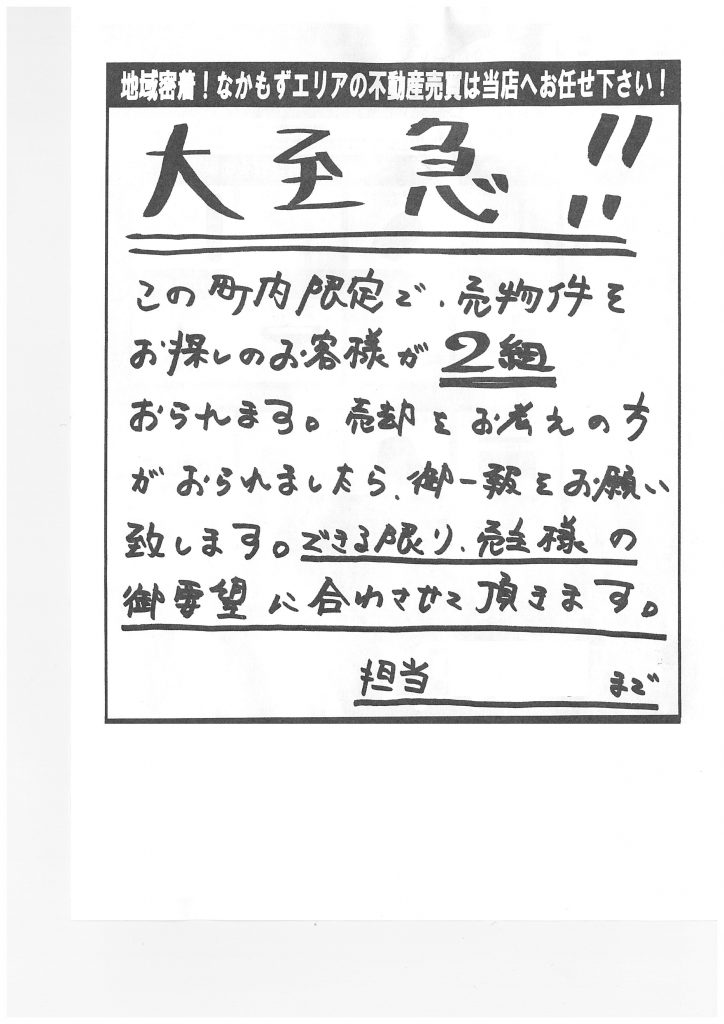 地域密着！なかもずエリアの不動産売買は当店へお任せ下さい！
大至急!!
この町内限定で、売物件を
お探しのお客様が2組
おられます。売却をお考えの方
がおられましたら、御一報をお願い
致します。できる限り、売主様の
御要望に合わさせて頂きます。
担当　　　まで